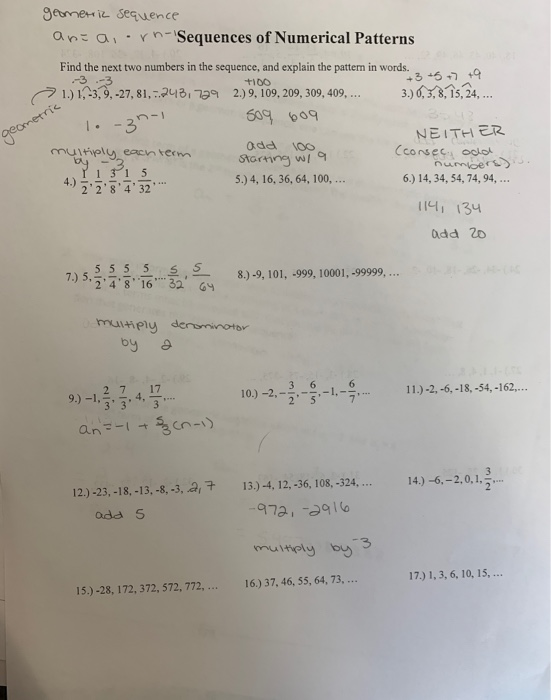 geometric sequence
an = a₁ · r n-1
Sequences of Numerical Patterns
Find the next two numbers in the sequence, and explain the pattern in words.
·-3 ·-3
+100
+3 +5 +7 +9
geometric
1.) 1, -3, 9, -27, 81, -243, 729
2.) 9, 109, 209, 309, 409, ...
3.) 0, 3, 8, 15, 24, ...
1 · -3 n-1
509, 609
NEITHER
multiply each term
by -3
add 100
starting w/ 9
(consec. odd
numbers)
4.) 1/2, 1/2, 3/8, 1/4, 5/32, ...
5.) 4, 16, 36, 64, 100, ...
6.) 14, 34, 54, 74, 94, ...
114, 134
add 20
7.) 5, 5/2, 5/4, 5/8, 5/16, ... 5/32, 5/64
8.) -9, 101, -999, 10001, -99999, ...
multiply denominator
by 2
9.) -1, 2/3, 7/3, 4, 17/3, ...
10.) -2, -3/2, -6/5, -1, -6/7, ...
11.) -2, -6, -18, -54, -162, ...
an = -1 + 5/3(n-1)
12.) -23, -18, -13, -8, -3, 2, 7
13.) -4, 12, -36, 108, -324, ...
14.) -6, -2, 0, 1, 3/2, ...
add 5
-972, -2916
multiply by -3
15.) -28, 172, 372, 572, 772, ...
16.) 37, 46, 55, 64, 73, ...
17.) 1, 3, 6, 10, 15, ...